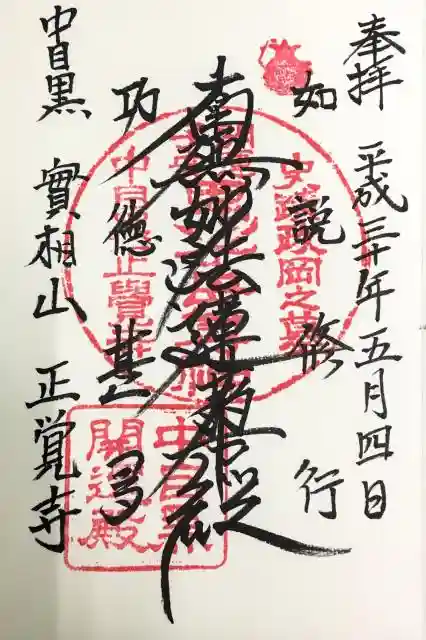 奉拝 平成三十年五月四日
如説修行
南無妙法蓮華経
功徳甚多
中目黒 實相山 正覚寺
史蹟政岡之墓
中目黒正覺寺
中目黒
開運殿